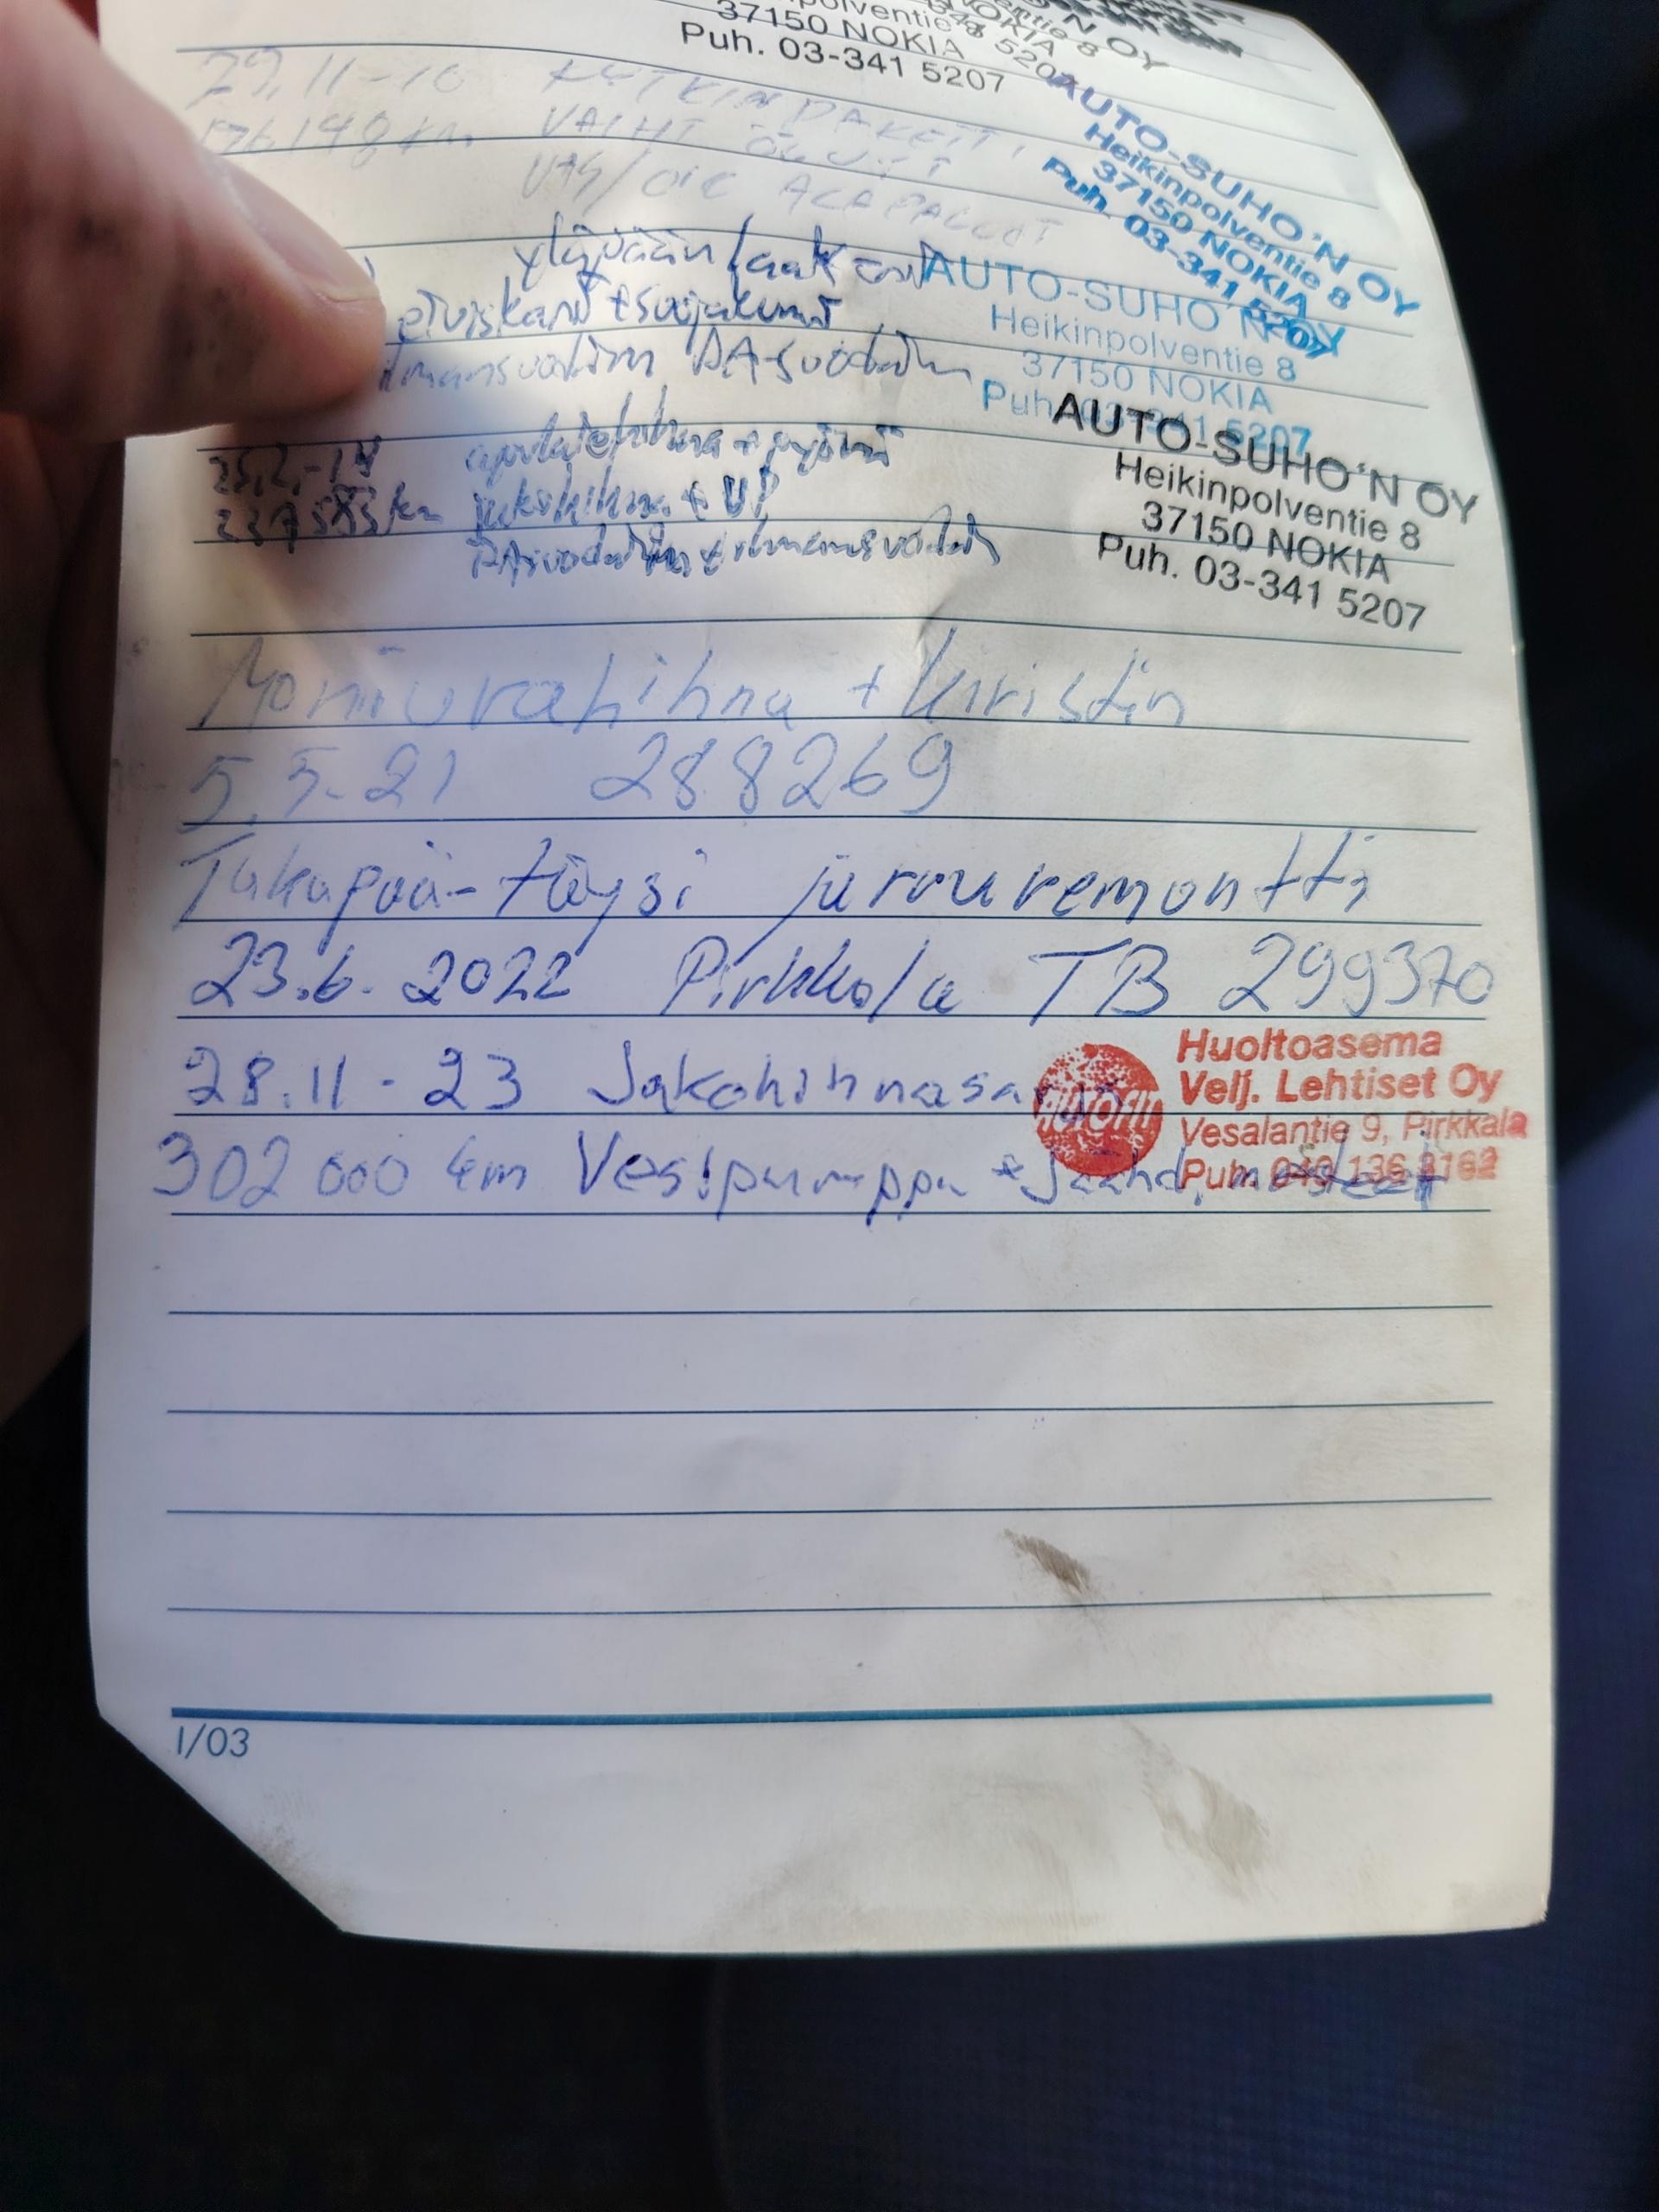 37150 NOKIA
Puh. 03-341 5207
29.11-10 KYTKINPAKETTI,
176148 km VAIHT. ÖLJYT
VAS/OIK ALAPALLOT
AUTO-SUHO'N OY
Heikinpolventie 8
37150 NOKIA
Puh. 03-341 5207
yläpään laak
+ suojakumit
ilmansuodatin RA-suodatin
AUTO-SUHO'N OY
Heikinpolventie 8
37150 NOKIA
Puh. 03-341 5207
25.2.-14 apulaitehihna + pyörä
km jakohihna + VP
RA suodatin + ilmansuodatin
AUTO-SUHO'N OY
Heikinpolventie 8
37150 NOKIA
Puh. 03-341 5207
Moniurahihna + kiristin
5.5-21 288269
Takapää-täysi jarruremontti
23.6.2022 Pirkkala TB 299370
28.11-23 Jakohihnasarja
302 000 km Vesipumppu + Jäähd. nesteet
Huoltoasema
Velj. Lehtiset Oy
Vesalantie 9, Pirkkala
Puh.
1/03